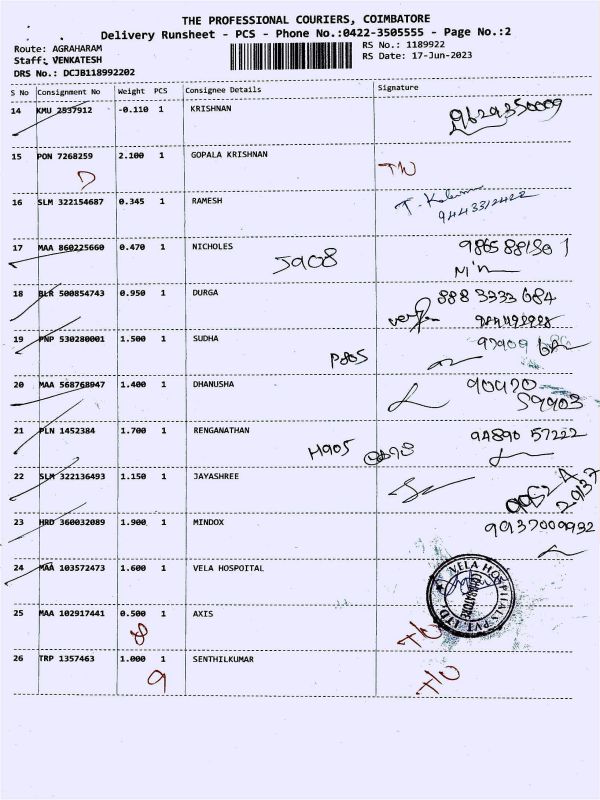 THE PROFESSIONAL COURIERS, COIMBATORE
Delivery Runsheet - PCS - Phone No.:0422-3505555 - Page No.:2
Route: AGRAHARAM
RS No.: 1189922
Staff: VENKATESH
RS Date: 17-Jun-2023
DRS No.: DCJB118992202
S No Consignment No Weight PCS Consignee Details Signature
14 KMU 2537912 -0.110 1 KRISHNAN 9629350009
15 PON 7268259 2.100 1 GOPALA KRISHNAN
16 SLM 322154687 0.345 1 RAMESH
9443312422
17 MAA 860225660 0.470 1 NICHOLES 9865881301
5908
18 BLR 500854743 0.950 1 DURGA 888 3333 684
19 PNP 530280001 1.500 1 SUDHA
P805
20 MAA 568768947 1.400 1 DHANUSHA 90920
59903
21 PLN 1452384 1.700 1 RENGANATHAN 94890 57222
H905
22 SLM 322136493 1.150 1 JAYASHREE
23 HRD 360032089 1.900 1 MINDOX 9937009932
24 MAA 103572473 1.600 1 VELA HOSPOITAL
VELA HOSPITALS PVT. LTD.
25 MAA 102917441 0.500 1 AXIS
8
26 TRP 1357463 1.000 1 SENTHILKUMAR
9